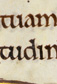 tuam
tudin